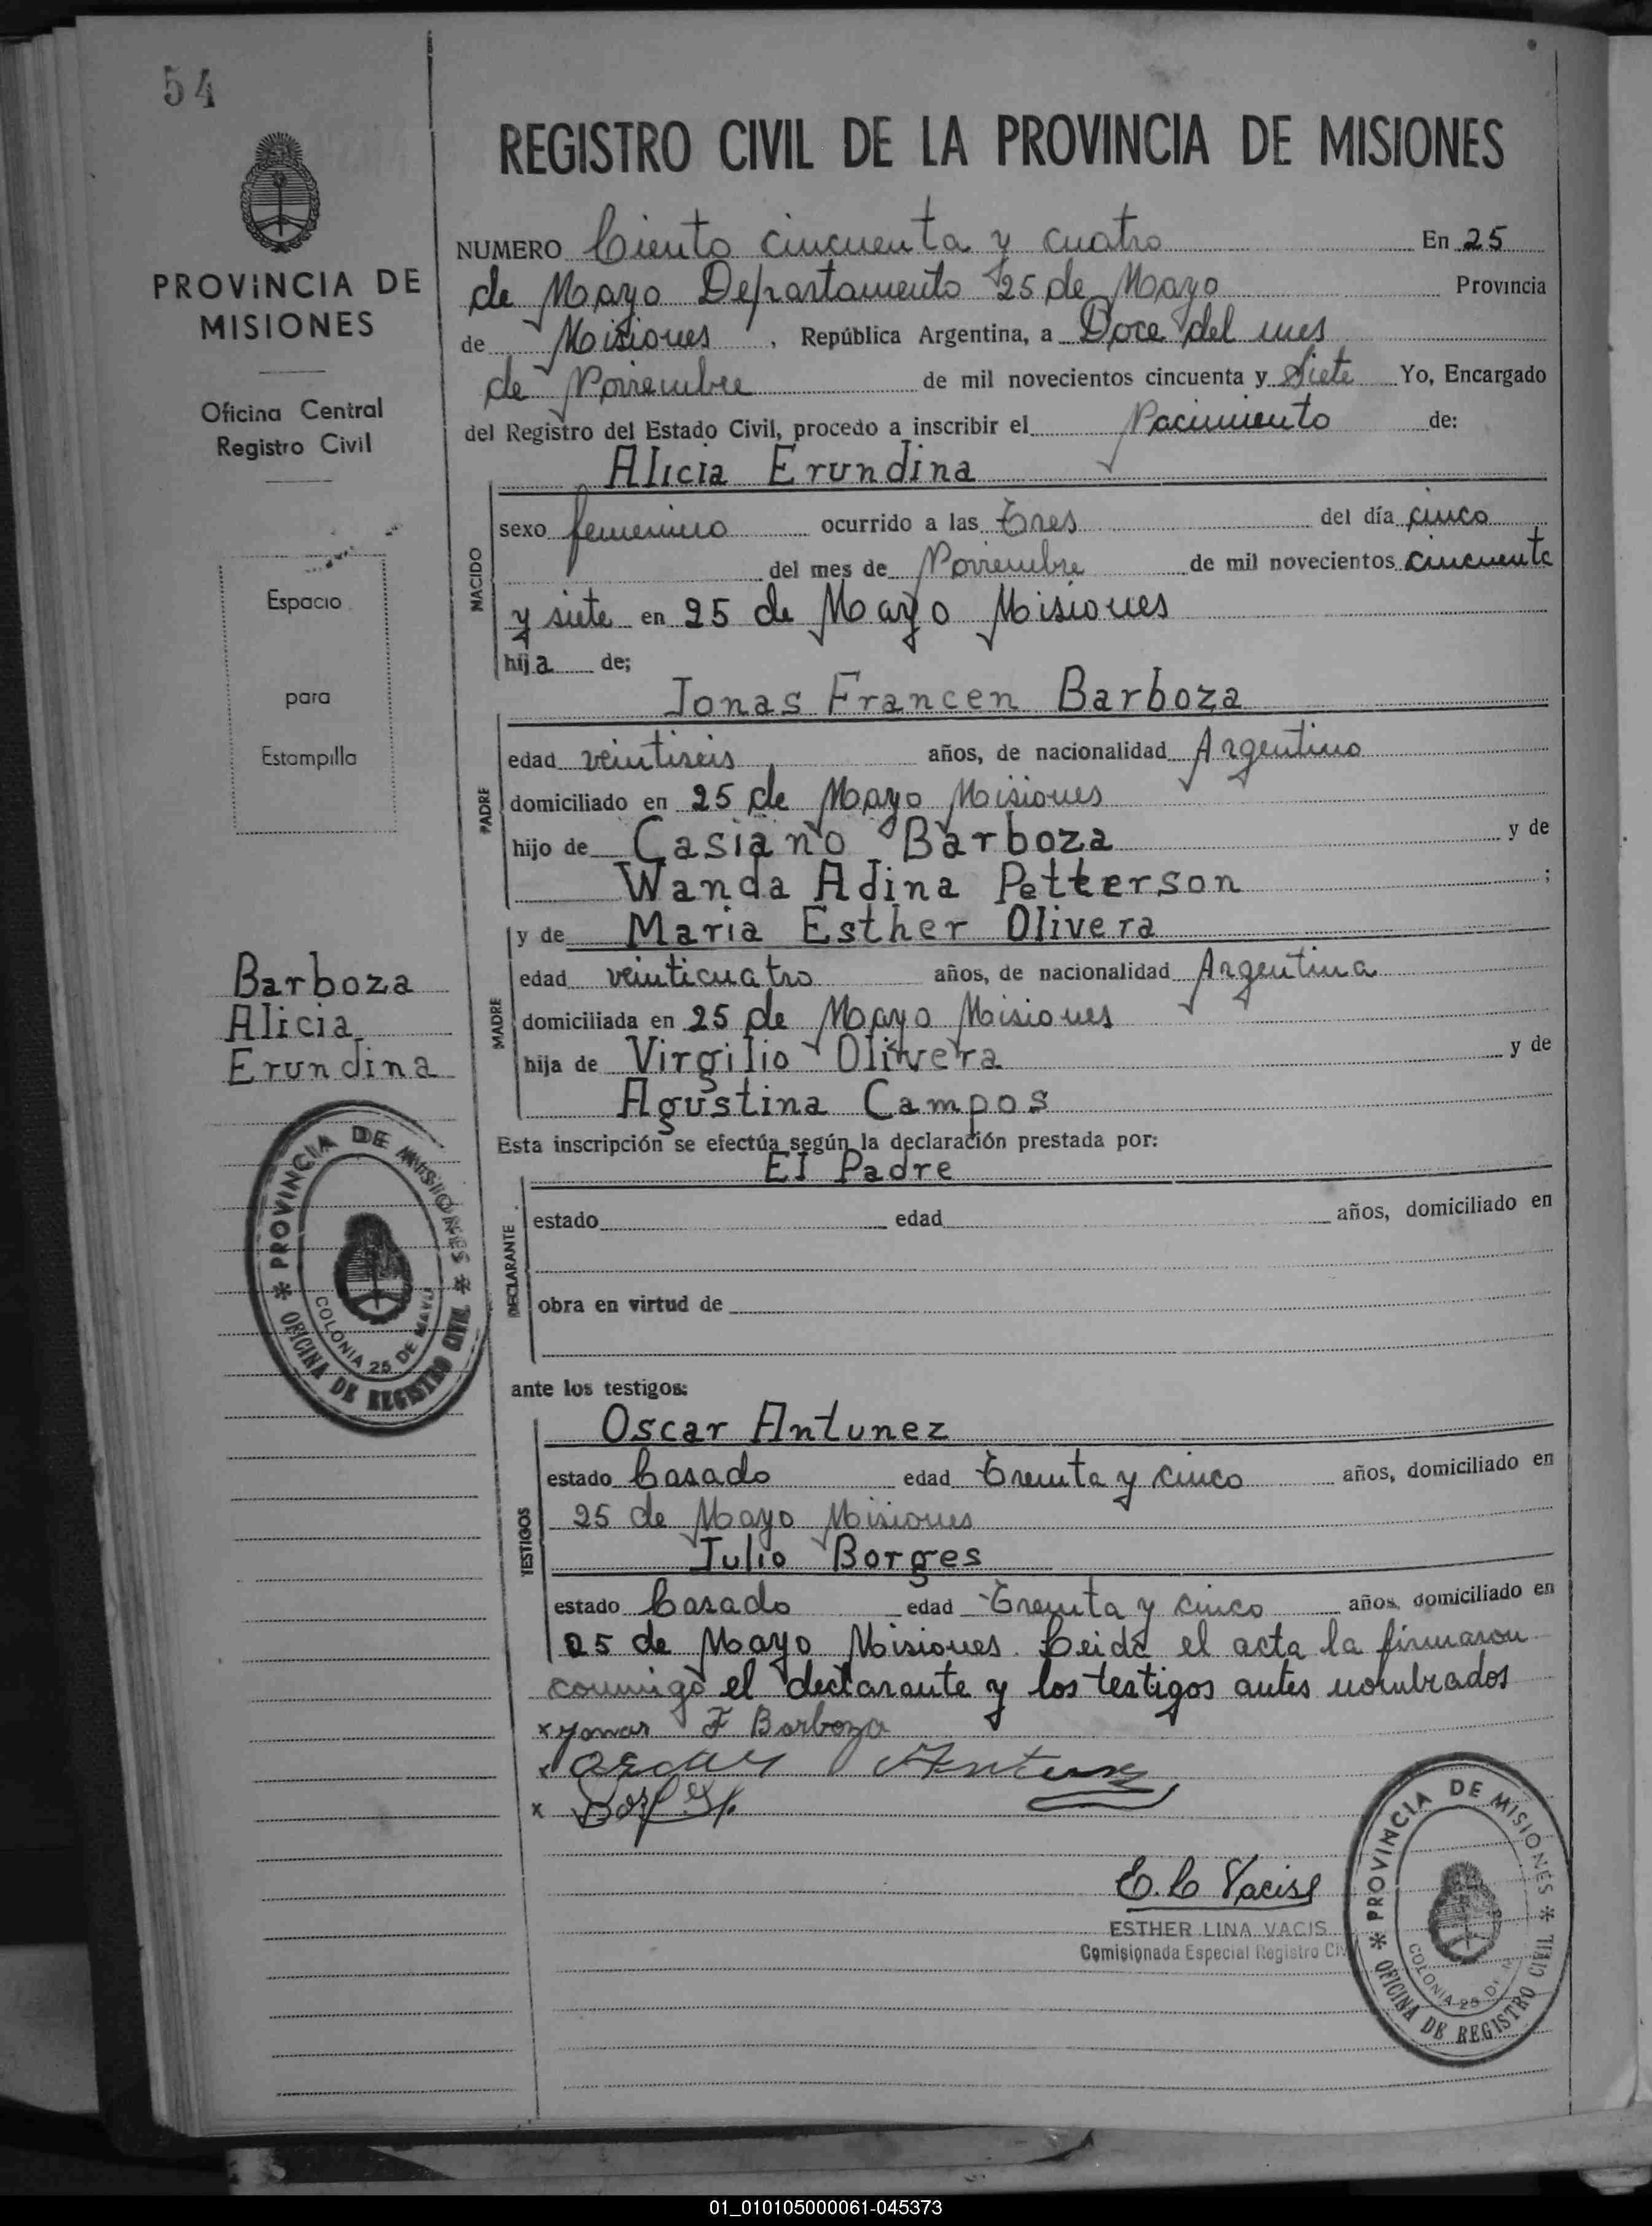 54
PROVINCIA DE
MISIONES
Oficina Central
Registro Civil
Espacio
para
Estampilla
Barboza
Alicia
Erundina
* PROVINCIA DE MISIONES * OFICINA DE REGISTRO CIVIL
COLONIA 25 DE MAYO
REGISTRO CIVIL DE LA PROVINCIA DE MISIONES
NUMERO Ciento cincuenta y cuatro En 25
de Mayo Departamento 25 de Mayo Provincia
de Misiones, República Argentina, a Doce del mes
de Noviembre de mil novecientos cincuenta y Siete Yo, Encargado
del Registro del Estado Civil, procedo a inscribir el Nacimiento de:
Alicia Erundina
NACIDO
sexo femenino ocurrido a las Tres del día cinco
del mes de Noviembre de mil novecientos cincuenta
y siete en 25 de Mayo Misiones
hija de;
Jonas Francen Barboza
PADRE
edad veintiseis años, de nacionalidad Argentino
domiciliado en 25 de Mayo Misiones
hijo de Casiano Barboza y de
Wanda Adina Petterson ;
y de Maria Esther Olivera
MADRE
edad veinticuatro años, de nacionalidad Argentina
domiciliada en 25 de Mayo Misiones
hija de Virgilio Olivera y de
Agustina Campos
Esta inscripción se efectúa según la declaración prestada por:
El Padre
DECLARANTE
estado edad años, domiciliado en
obra en virtud de
ante los testigos:
Oscar Antunez
TESTIGOS
estado Casado edad Treinta y cinco años, domiciliado en
25 de Mayo Misiones
Julio Borges
estado Casado edad Treinta y cinco años, domiciliado en
25 de Mayo Misiones. Leida el acta la firmaron
conmigo el declarante y los testigos antes nombrados
x Jonas F Barboza
x Oscar Antunez
x
E. L. Vacis
ESTHER LINA VACIS
Comisionada Especial Registro Civ
* PROVINCIA DE MISIONES * OFICINA DE REGISTRO CIVIL
COLONIA 25 DE M
01_010105000061-045373